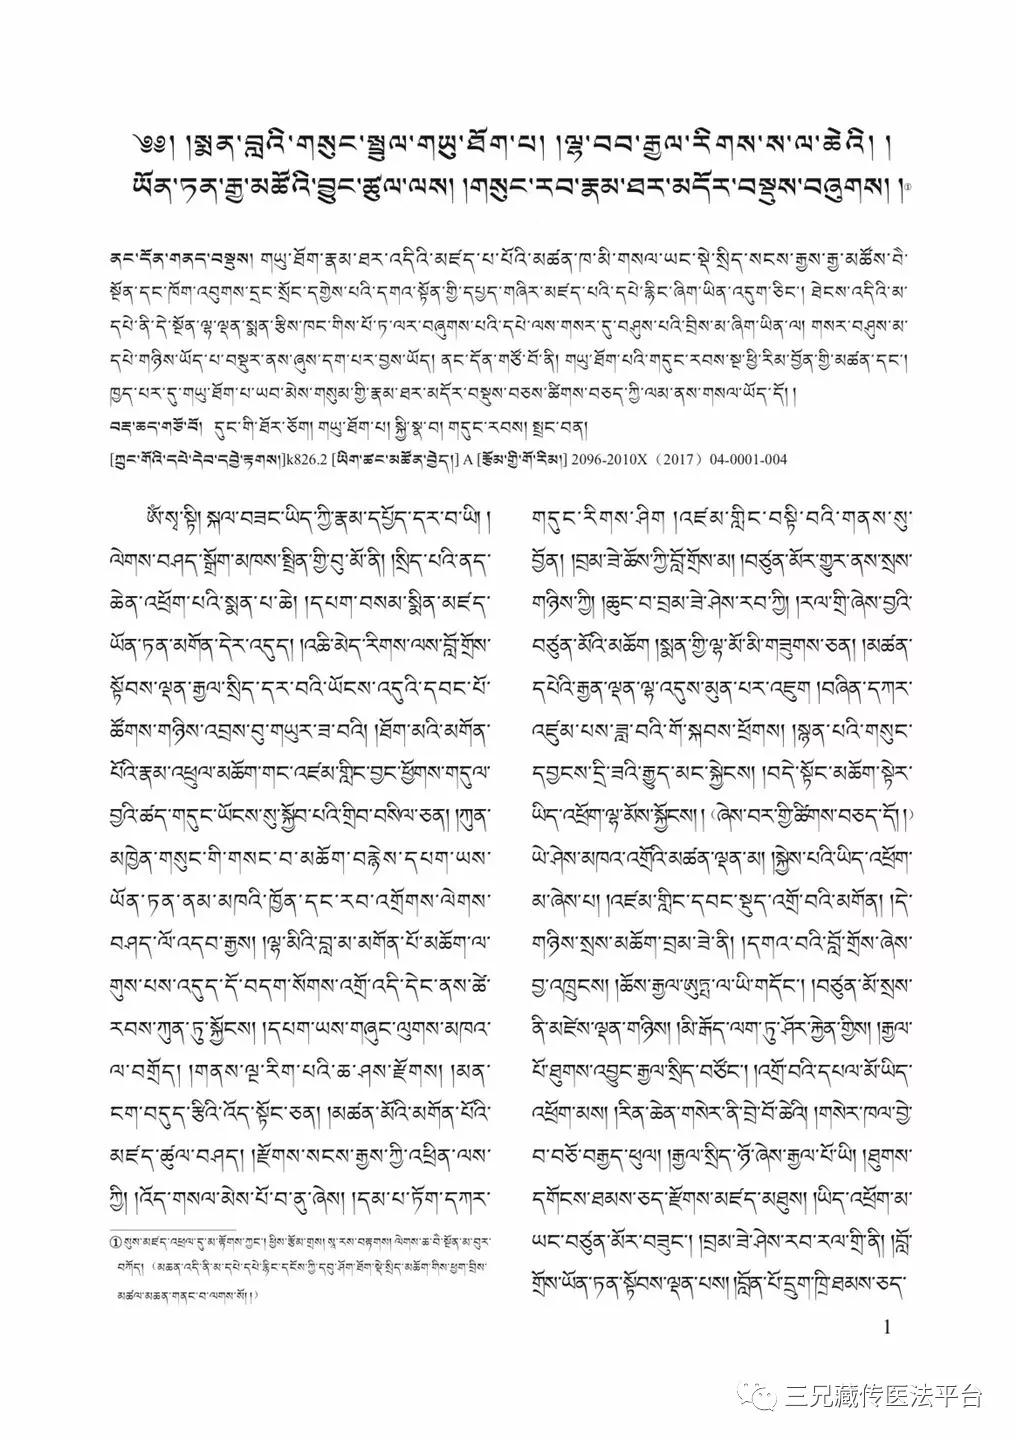 ༄༅། །སྨན་བླའི་གསུང་སྤྲུལ་གཡུ་ཐོག་པ། །ལྷ་བབ་རྒྱལ་རིགས་ས་ལ་ཆེའི། །
ཡོན་ཏན་རྒྱ་མཚོའི་བྱུང་ཚུལ་ལས། །གསུང་རབ་རྣམ་ཐར་མདོར་བསྡུས་བཞུགས། །①
ནང་དོན་གནད་བསྡུས། གཡུ་ཐོག་རྣམ་ཐར་འདིའི་མཛད་པ་པོའི་མཚན་ཁ་མི་གསལ་ཡང་སྡེ་སྲིད་སངས་རྒྱས་རྒྱ་མཚོས་བཻ་
སྔོན་དང་ཁོག་འབུགས་དྲང་སྲོང་དགྱེས་པའི་དགའ་སྟོན་གྱི་དཔྱད་གཞིར་མཛད་པའི་དཔེ་རྙིང་ཞིག་ཡིན་འདུག་ཅིང་། ཐེངས་འདིའི་མ་
དཔེ་ནི་དེ་སྔོན་ལྷ་ལྡན་སྨན་རྩིས་ཁང་གིས་པོ་ཏ་ལར་བཞུགས་པའི་དཔེ་ལས་གསར་དུ་བཤུས་པའི་བྲིས་མ་ཞིག་ཡིན་ལ། གསར་བཤུས་མ་
དཔེ་གཉིས་ཡོད་པ་བསྡུར་ནས་ཞུས་དག་པར་བྱས་ཡོད། ནང་དོན་གཙོ་བོ་ནི། གཡུ་ཐོག་པའི་གདུང་རབས་སྔ་ཕྱི་རིམ་བྱོན་གྱི་མཚན་དང་།
ཁྱད་པར་དུ་གཡུ་ཐོག་པ་ཡབ་མེས་གསུམ་གྱི་རྣམ་ཐར་མདོར་བསྡུས་བཅས་ཚིགས་བཅད་ཀྱི་ལམ་ནས་གསལ་ཡོད་དོ། །
བརྡ་ཆད་གཙོ་བོ། དུང་གི་ཐོར་ཅོག། གཡུ་ཐོག་པ། སྐྱི་སྣ་བ། གདུང་རབས། སྲང་བན།
[ཀྲུང་གོའི་དཔེ་དེབ་དབྱེ་རྟགས།]k826.2 [ཡིག་ཚང་མཚོན་བྱེད།] A [རྩོམ་གྱི་གོ་རིམ།] 2096-2010X（2017）04-0001-004
ཨོཾ་སྭ་སྟི། སྐལ་བཟང་ཡིད་ཀྱི་རྣམ་དཔྱོད་དར་བ་ཡི། །
ལེགས་བཤད་སྒྲོག་མཁས་སྤྲིན་གྱི་བུ་མོ་ནི། །སྲིད་པའི་ནད་
ཆེན་འཕྲོག་པའི་སྨན་པ་ཆེ། །དཔག་བསམ་སྨིན་མཛད་
ཡོན་ཏན་མགོན་དེར་འདུད། །འཆི་མེད་རིགས་ལས་བློ་གྲོས་
སྟོབས་ལྡན་རྒྱལ་སྲིད་དར་བའི་ཡོངས་འདུའི་དབང་པོ་
ཚོགས་གཉིས་འབྲས་བུ་གཡུར་ཟ་བའི། །ཐོག་མའི་མགོན་
པོའི་རྣམ་འཕྲུལ་མཆོག་གང་འཛམ་གླིང་བྱང་ཕྱོགས་གདུལ་
བྱའི་ཚད་གདུང་ཡོངས་སུ་སྐྱོབ་པའི་གྲིབ་བསིལ་ཅན། །ཀུན་
མཁྱེན་གསུང་གི་གསང་བ་མཆོག་བརྙེས་དཔག་ཡས་
ཡོན་ཏན་ནམ་མཁའི་ཁྱོན་དང་རབ་འགྲོགས་ལེགས་
བཤད་ལོ་འདབ་རྒྱས། །ལྷ་མིའི་བླ་མ་མགོན་པོ་མཆོག་ལ་
གུས་པས་འདུད་དོ་བདག་སོགས་འགྲོ་འདི་དེང་ནས་ཚེ་
རབས་ཀུན་ཏུ་སྐྱོངས། །དཔག་ཡས་གཞུང་ལུགས་མཁའ་
ལ་བགྲོད། །གནས་ལྔ་རིག་པའི་ཆ་ཤས་རྫོགས། །མན་
ངག་བདུད་རྩིའི་འོད་སྟོང་ཅན། །མཚན་མོའི་མགོན་པོའི་
མཛད་ཚུལ་བཤད། །རྫོགས་སངས་རྒྱས་ཀྱི་འཕྲིན་ལས་
ཀྱི། །འོད་གསལ་མེས་པོ་བ་ནུ་ཞེས། །དམ་པ་ཏོག་དཀར་
①སུས་མཛད་འཕྲལ་དུ་མ་རྟོགས་ཀྱང་། ཕྱིས་རྩོམ་གྲས། སཱུ་རས་བརྟགས། ལེགས་ཆ་བཻ་སྔོན་མ་བུར་
བཀོད། （མཆན་འདི་ནི་མ་དཔེ་དཔེ་རྙིང་དངོས་ཀྱི་དབུ་ཤོག་ཐོག་སྡེ་སྲིད་མཆོག་གིས་ཕྱག་བྲིས་
མཚལ་མཆན་གནང་བ་ལགས་སོ། །）
གདུང་རིགས་ཤིག །འཛམ་གླིང་བསྟི་བའི་གནས་སུ་
བྱོན། །བྲམ་ཟེ་ཆོས་ཀྱི་བློ་གྲོས་མ། །བཙུན་མོར་གྱུར་ནས་སྲས་
གཉིས་ཀྱི། །ཆུང་བ་བྲམ་ཟེ་ཤེས་རབ་ཀྱི། །རལ་གྲི་ཞེས་བྱའི་
བཙུན་མོའི་མཆོག །སྨན་གྱི་ལྷ་མོ་མི་གཟུགས་ཅན། །མཚན་
དཔེའི་རྒྱན་ལྡན་ལྷ་འདུས་མུན་པར་འཇུག །བཞིན་དཀར་
འཛུམ་པས་ཟླ་བའི་གོ་སྐབས་ཕྲོགས། །སྙན་པའི་གསུང་
དབྱངས་དྲི་ཟའི་རྒྱུད་མང་སྐྱེངས། །བདེ་སྟོང་མཆོག་སྟེར་
ཡིད་འཕྲོག་ལྷ་མོས་སྐྱོངས། །（ཞེས་བར་གྱི་ཚིགས་བཅད་དོ། །）
ཡེ་ཤེས་མཁའ་འགྲོའི་མཚན་ལྡན་མ། །སྐྱེས་པའི་ཡིད་འཕྲོག་
མ་ཞེས་པ། །འཛམ་གླིང་དབང་སྡུད་འགྲོ་བའི་མགོན། །དེ་
གཉིས་སྲས་མཆོག་བྲམ་ཟེ་ནི། །དགའ་བའི་བློ་གྲོས་ཞེས་
བྱ་འཁྲུངས། །ཆོས་རྒྱལ་ཨུཏྤ་ལ་ཡི་གདོང་། །བཙུན་མོ་སྲས་
ནི་མཛེས་ལྡན་གཉིས། །མི་རྒོད་ལག་ཏུ་ཤོར་རྐྱེན་གྱིས། །རྒྱལ་
པོ་ཐུགས་འབྱུང་རྒྱལ་སྲིད་བཙོང་། །འགྲོ་བའི་དཔལ་མོ་ཡིད་
འཕྲོག་མས། །རིན་ཆེན་གསེར་ནི་བྲེ་བོ་ཆེའི། །གསེར་ཁལ་བྱེ་
བ་བཅོ་བརྒྱད་ཕུལ། །རྒྱལ་སྲིད་ཉོ་ཞེས་རྒྱལ་པོ་ཡི། །ཐུགས་
དགོངས་ཐམས་ཅད་རྫོགས་མཛད་མཐུས། །ཡིད་འཕྲོག་མ་
ཡང་བཙུན་མོར་བཟུང་། །བྲམ་ཟེ་ཤེས་རབ་རལ་གྲི་ནི། །བློ་
གྲོས་ཡོན་ཏན་སྟོབས་ལྡན་པས། །བློན་པོ་དྲུག་ཁྲི་ཐམས་ཅད་
1
三兄藏传医法平台